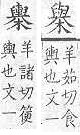 羊茹切食
輿也文一
羊諸切箯
輿也文一